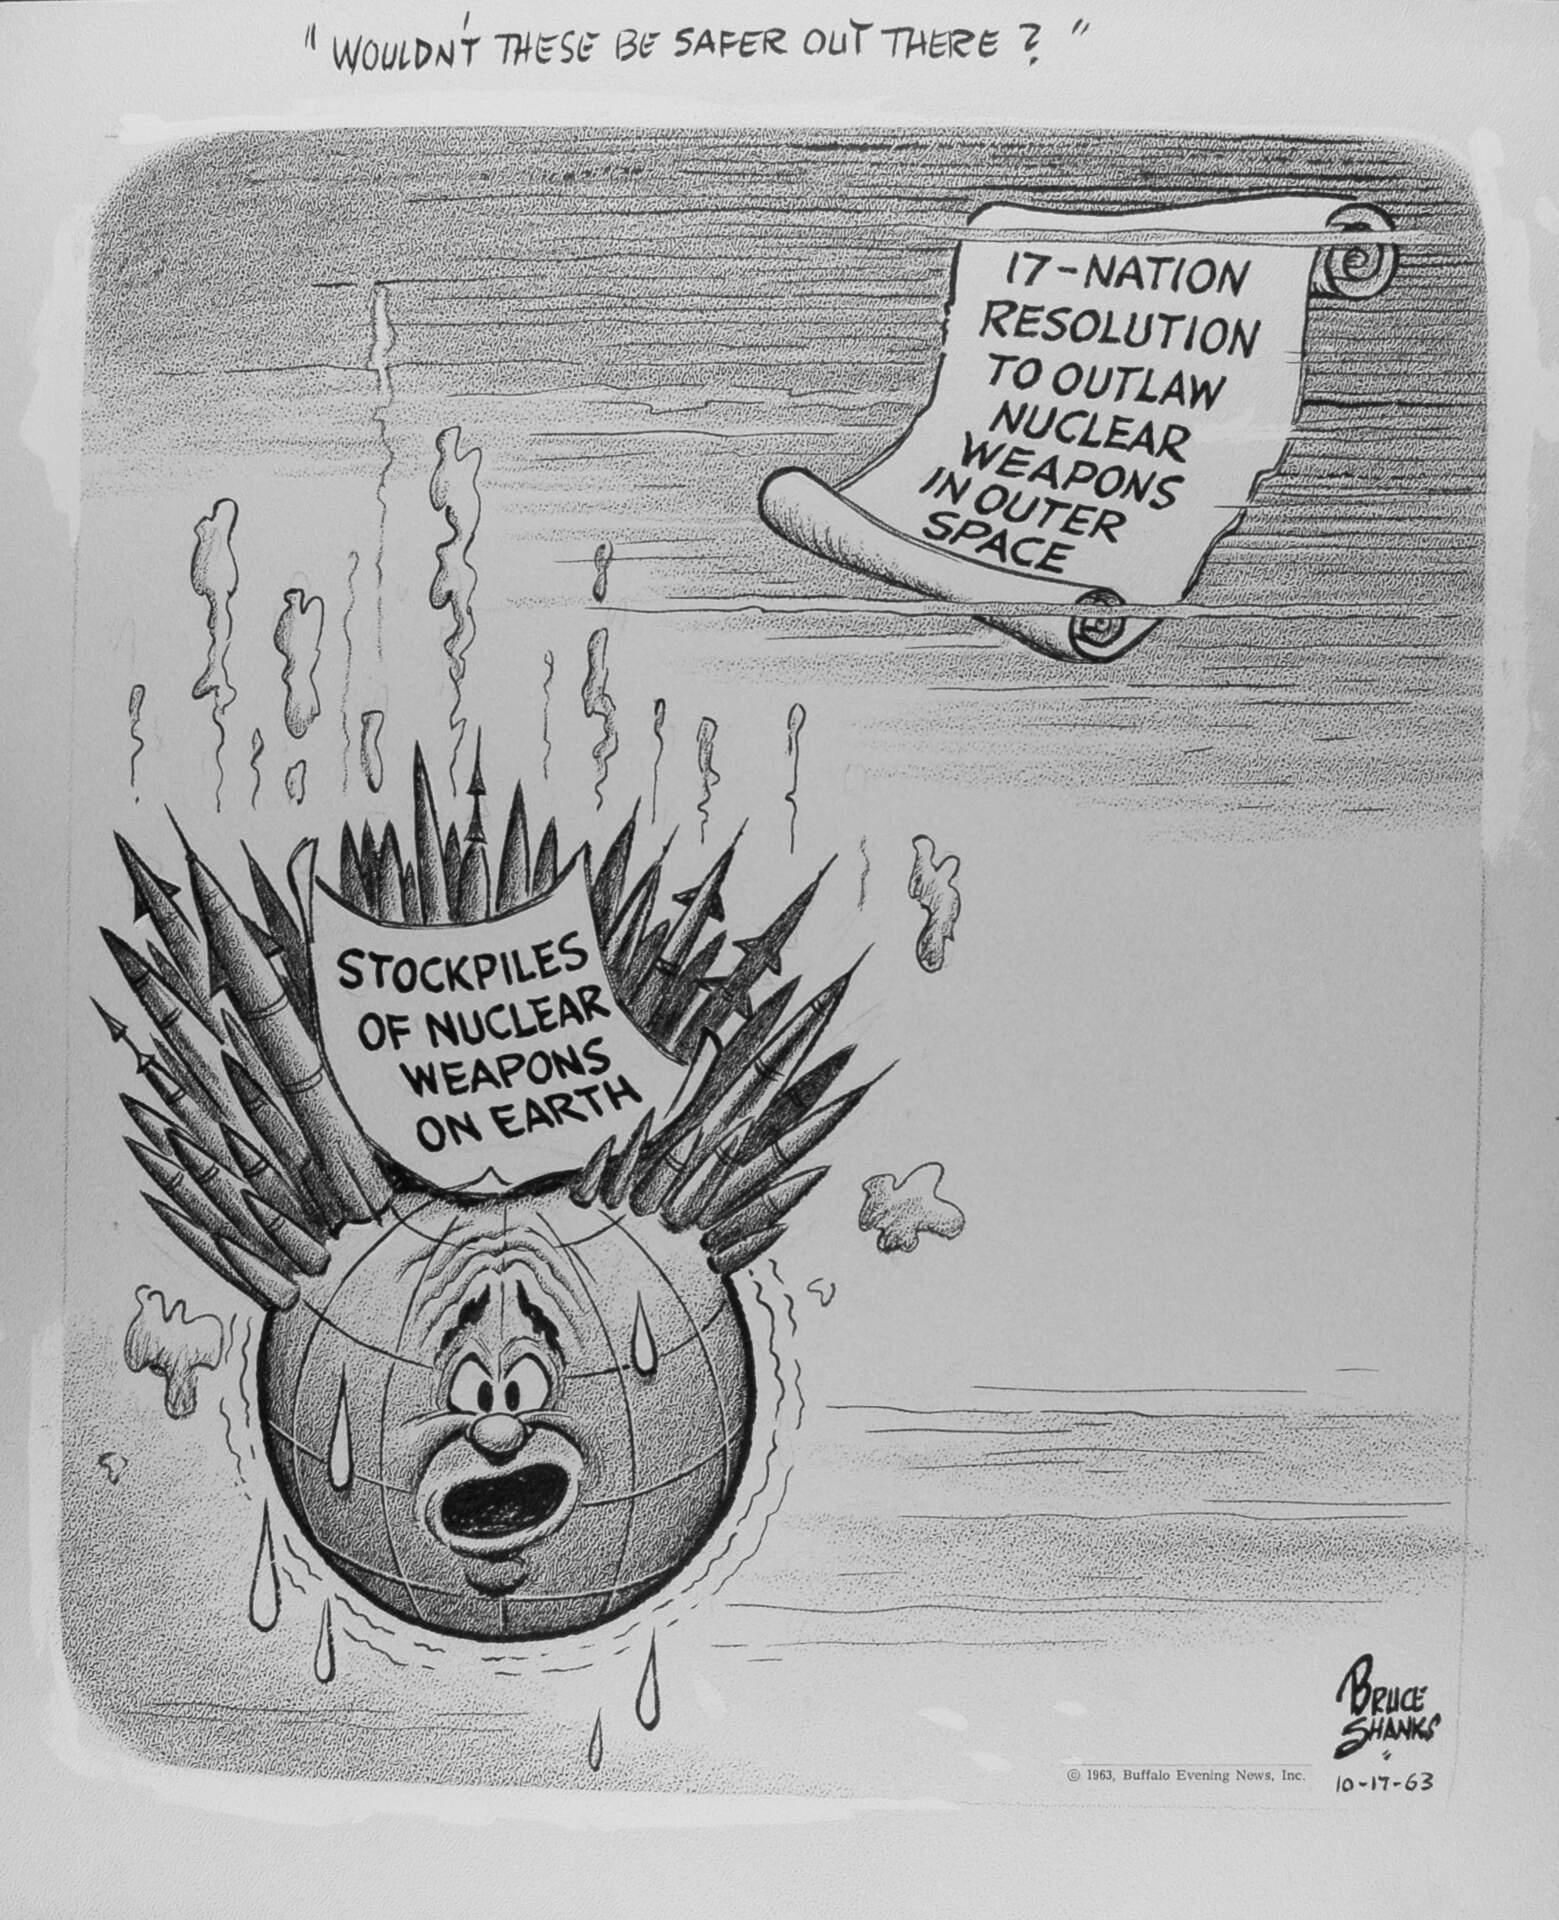 "WOULDN'T THESE BE SAFER OUT THERE?"
17-NATION
RESOLUTION
TO OUTLAW
NUCLEAR
WEAPONS
IN OUTER
SPACE
STOCKPILES
OF NUCLEAR
WEAPONS
ON EARTH
BRUCE
SHANKS
© 1963, Buffalo Evening News, Inc.
10-17-63